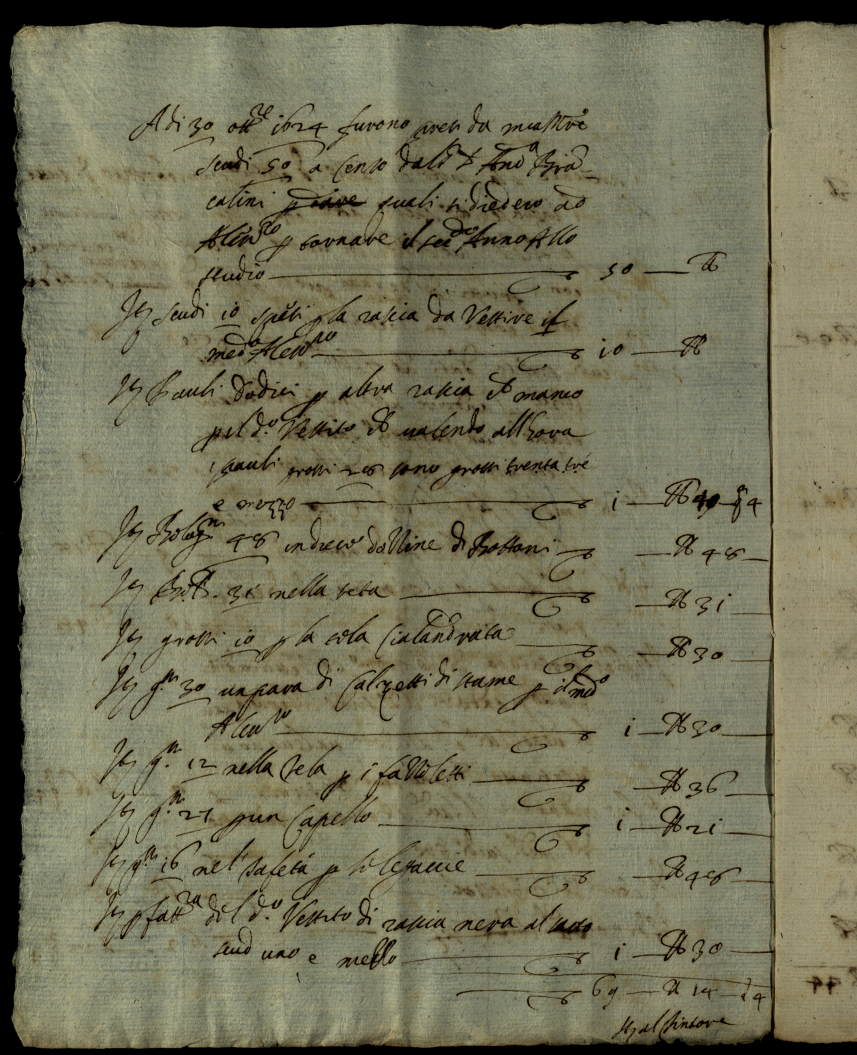 Adi 30 ott.re 1624 furono presi da
scudi 50 a censo dal S.r Ant.o Bra-
calini quali si diedero ad
Aless.ro p tornare il sec.do Anno Allo
studio — 50 — B
It scudi 10 spesi p la rascia da Vestire il
med.o Aless.ro — 10 — B
It Pauli Dodici p altra rascia manco
pel d.o Vestito valendo allhora
i pauli grossi sono grossi trenta tré
e mezzo — 1 — B 40 q 4
It Bologni 48 in dieci dozzine di Bottoni — B 48
It Bol. 31 nella seta — B 31
It grossi 10 p la tela Calandrata — B 30
It g.ssi 30 un para di Calzetti di stame p il med.o
Aless.ro — 1 — B 30
It g.ssi 12 nella tela p i fazzoletti — B 36
It g.ssi 27 p un Capello — 1 — B 21
It g.ssi 16 nel tafetà p le legaccie — B 48
It p fatt.ra del d.o Vestito di rascia nera al
scud uno e mezzo — 1 — B 30
69 — B 14 — q 4
It al Pintore